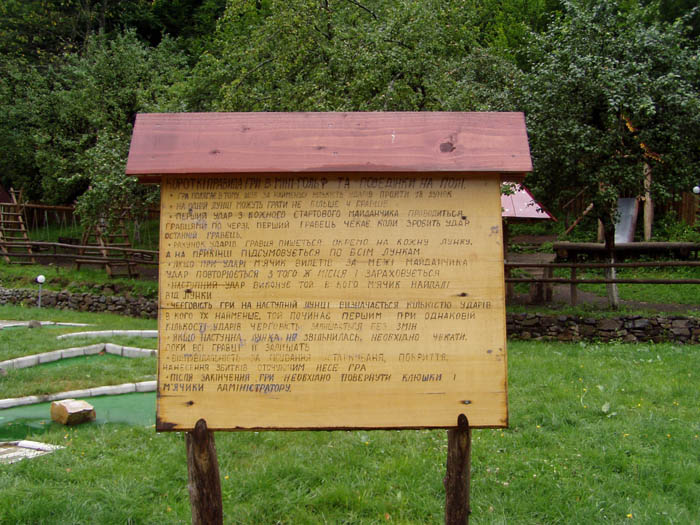 КОРОТКІ ПРАВИЛА ГРИ В МІНІГОЛЬФ ТА ПОВЕДІНКИ НА ПОЛІ.
• ГРА ПОЛЯГАЄ В ТОМУ, ЩОБ ЗА НАЙМЕНШУ КІЛЬКІСТЬ УДАРІВ ПРОЙТИ ЛУНОК
• НА ОДНІЙ ЛУНЦІ МОЖУТЬ ГРАТИ НЕ БІЛЬШЕ ГРАВЦІВ
• ПЕРШИЙ УДАР З КОЖНОГО СТАРТОВОГО МАЙДАНЧИКА ПРОВОДИТЬСЯ
ГРАВЦЯМИ ПО ЧЕРЗІ, ПЕРШИЙ ГРАВЕЦЬ ЧЕКАЄ КОЛИ ЗРОБИТЬ УДАР
ОСТАННІЙ ГРАВЕЦЬ.
• РАХУНОК УДАРІВ ГРАВЦЯ ПИШЕТЬСЯ ОКРЕМО НА КОЖНУ ЛУНКУ,
А НА ПРИКІНЦІ ПІДСУМОВУЄТЬСЯ ПО ВСІМ ЛУНКАМ
• ЯКЩО ПРИ УДАРІ М'ЯЧИК ВИЛЕТІВ ЗА МЕЖІ МАЙДАНЧИКА
УДАР ПОВТОРЮЄТЬСЯ З ТОГО Ж МІСЦЯ І ЗАРАХОВУЄТЬСЯ
• НАСТУПНИЙ УДАР ВИКОНУЄ ТОЙ В КОГО М'ЯЧИК НАЙДАЛІ
ВІД ЛУНКИ
• ЧЕРГОВІСТЬ ГРИ НА НАСТУПНІЙ ЛУНЦІ ВИЗНАЧАЄТЬСЯ КІЛЬКІСТЮ УДАРІВ
В КОГО ЇХ НАЙМЕНШЕ, ТОЙ ПОЧИНАЄ ПЕРШИМ ПРИ ОДНАКОВІЙ
КІЛЬКОСТІ УДАРІВ ЧЕРГОВІСТЬ ЗАЛИШАЄТЬСЯ БЕЗ ЗМІН
• ЯКЩО НАСТУПНА ЛУНКА НЕ ЗВІЛЬНИЛАСЬ, НЕОБХІДНО ЧЕКАТИ,
ДОКИ ВСІ ГРАВЦІ ЇЇ ЗАЛИШАТЬ
• ВІДПОВІДАЛЬНІСТЬ ЗА ПСУВАННЯ ПОКРИТТЯ,
НАНЕСЕННЯ ЗБИТКІВ ОТОЧУЮЧИМ НЕСЕ ГРА
• ПІСЛЯ ЗАКІНЧЕННЯ ГРИ НЕОБХІДНО ПОВЕРНУТИ КЛЮШКИ І
М'ЯЧИКИ АДМІНІСТРАТОРУ.